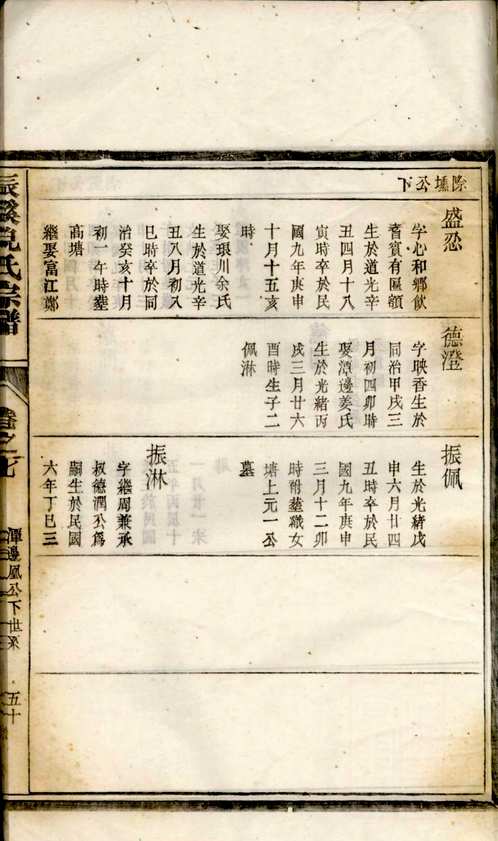 除壎公下
盛忍
字心和鄉飲
耆賓有區額
生於道光辛
丑四月十八
寅時卒於民
國九年庚申
十月十五亥
時
娶琅川余氏
生於道光辛
丑八月初八
巳時卒於同
治癸亥十月
初一午時塟
高塘
繼娶富江鄭
德澄
字映香生於
同治甲戌三
月初四卯時
娶潭邊姜氏
生於光緒丙
戌三月廿六
酉時生子二
佩淋
振佩
生於光緒戊
申六月廿四
丑時卒於民
國九年庚申
三月十二卯
時附塟職女
塘上元一公
墓
振淋
字繼周兼承
叔德潤公爲
嗣生於民國
六年丁巳三
氏宗譜
卷之七
潭邊胤公下世系
五十